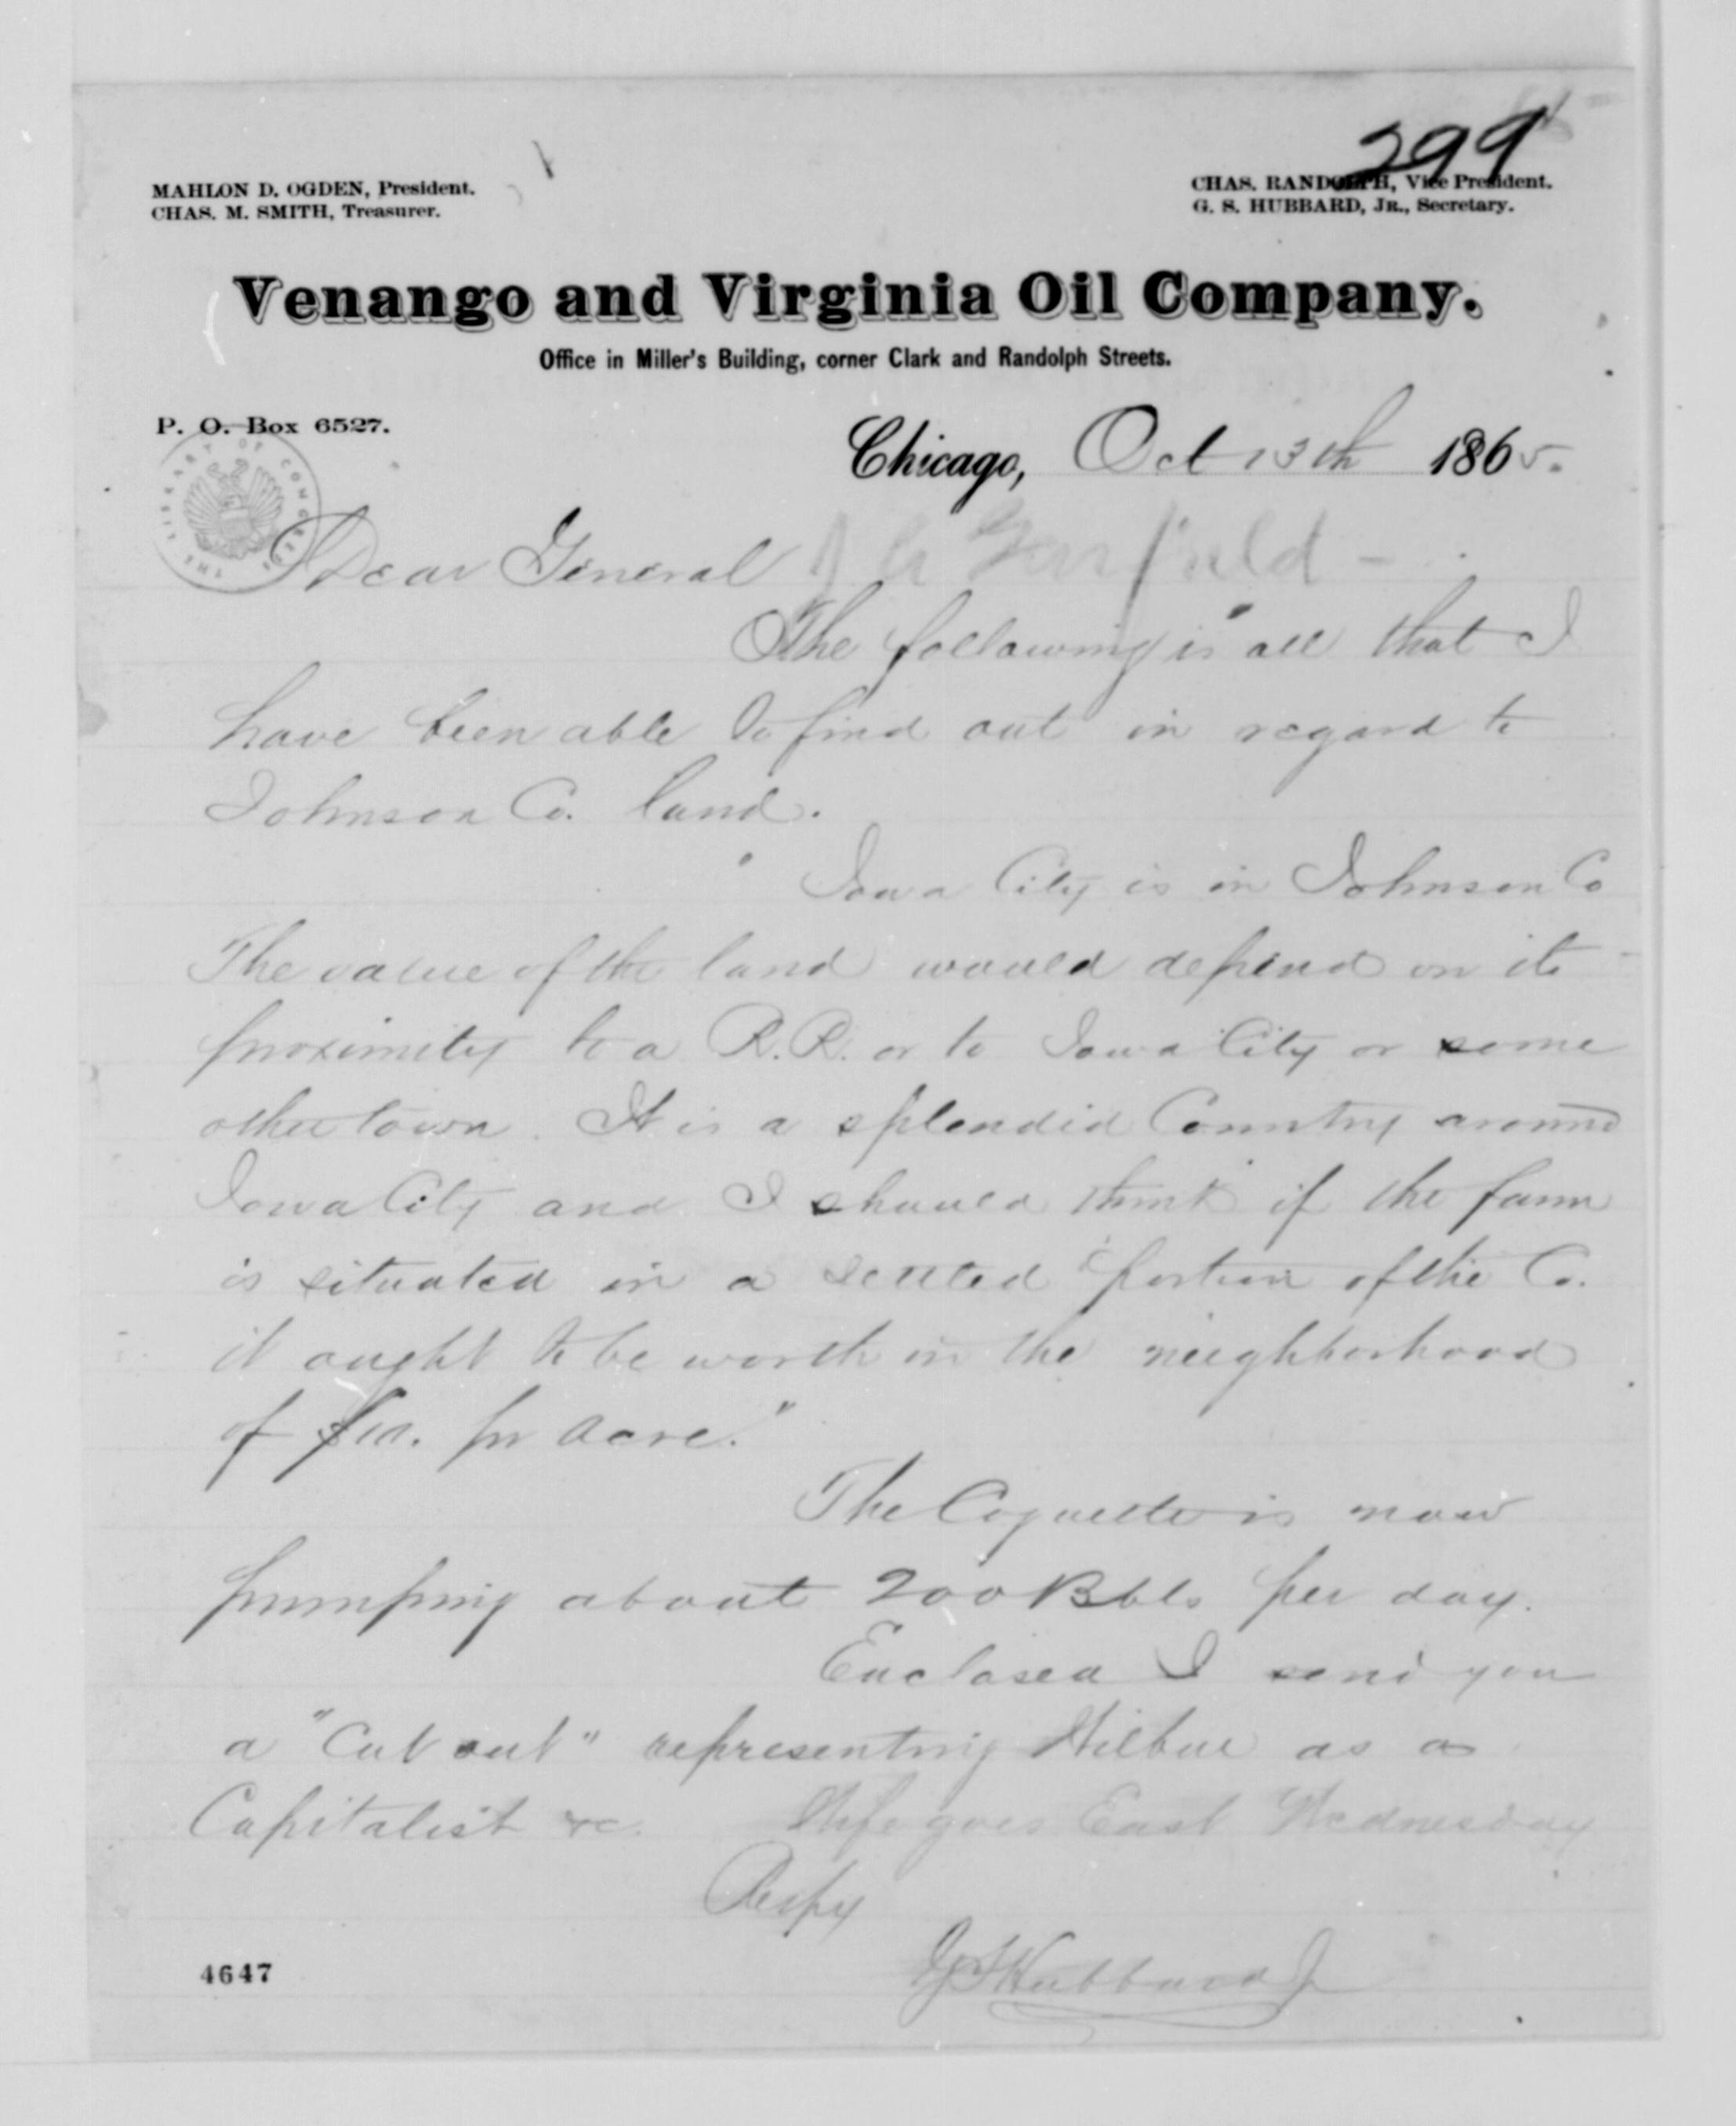 299
MAHLON D. OGDEN, President.
CHAS. M. SMITH, Treasurer.
CHAS. RANDOLPH, Vice President.
G. S. HUBBARD, JR., Secretary.
Venango and Virginia Oil Company.
Office in Miller's Building, corner Clark and Randolph Streets.
P. O. Box 6527.
Chicago, Oct 13th 1865.
THE LIBRARY OF CONGRESS
Dear General J A Garfield -
The following is all that I
have been able to find out in regard to
Johnson Co. land.
" Iowa City is in Johnson Co
The value of the land would depend on its
proximity to a R.R. or to Iowa City or some
other town. It is a splendid Country around
Iowa City and I should think if the farm
is situated in a settled portion of the Co.
it ought to be worth in the neighborhood
of $10. pr acre."
The Coquette is now
pumping about 200 Bbls per day.
Enclosed I send you
a "cut out" representing Wilbur as a
Capitalist &c. Wife goes East Wednesday
Respy
G S Hubbard Jr
4647